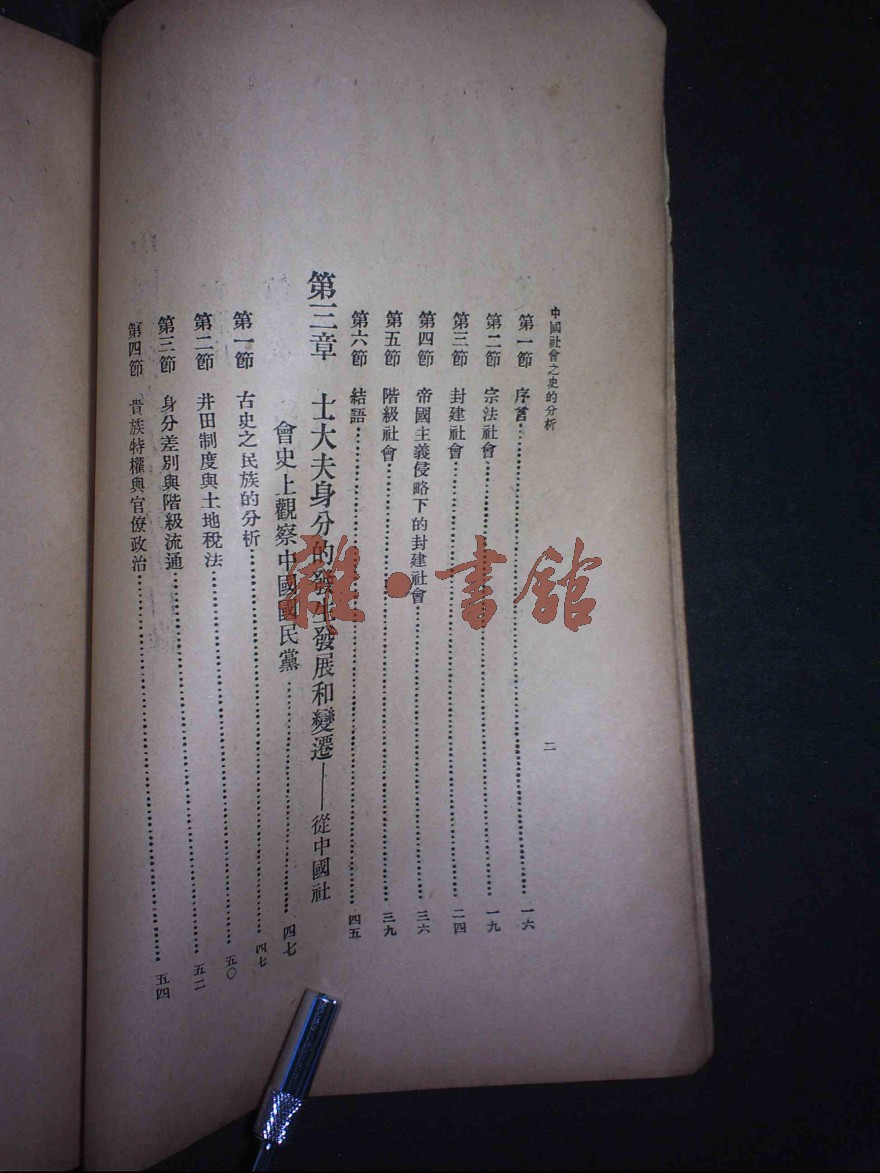 中國社會之史的分析
二
第一節 序言 一六
第二節 宗法社會 一九
第三節 封建社會 二四
第四節 帝國主義侵略下的封建社會 三六
第五節 階級社會 三九
第六節 結語 四五
第三章 士大夫身分的發生發展和變遷——從中國社
會史上觀察中國國民黨 四七
第一節 古史之民族的分析 四七
第二節 井田制度與土地稅法 五〇
第三節 身分差別與階級流通 五二
第四節 貴族特權與官僚政治 五四
雜·書館